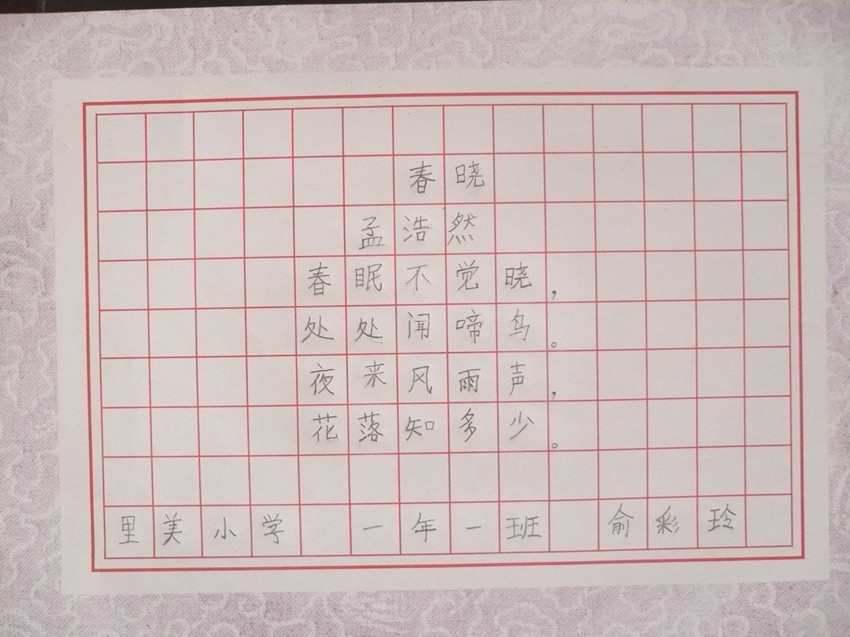 春晓
孟浩然
春眠不觉晓，
处处闻啼鸟。
夜来风雨声，
花落知多少。
里美小学 一年一班 俞彩玲